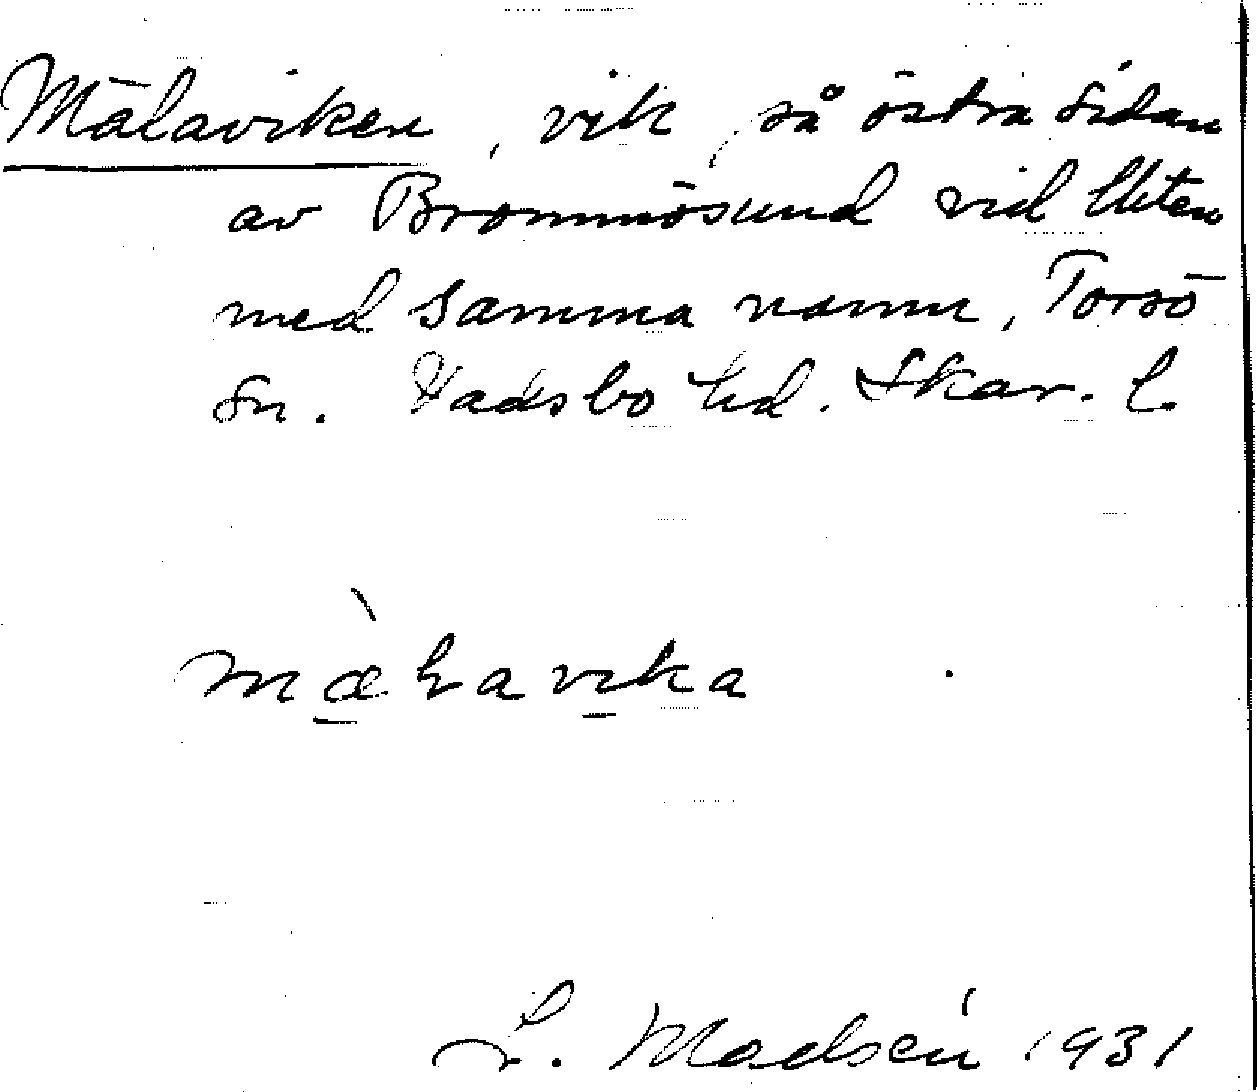 Mälaviken, vik på östra sidan
av Brommösund vid Udden
med samma namn, Torsö
sn. Vadsbo hd. Skar. l.
mæ̀ɽavika
L. Madsén 1931